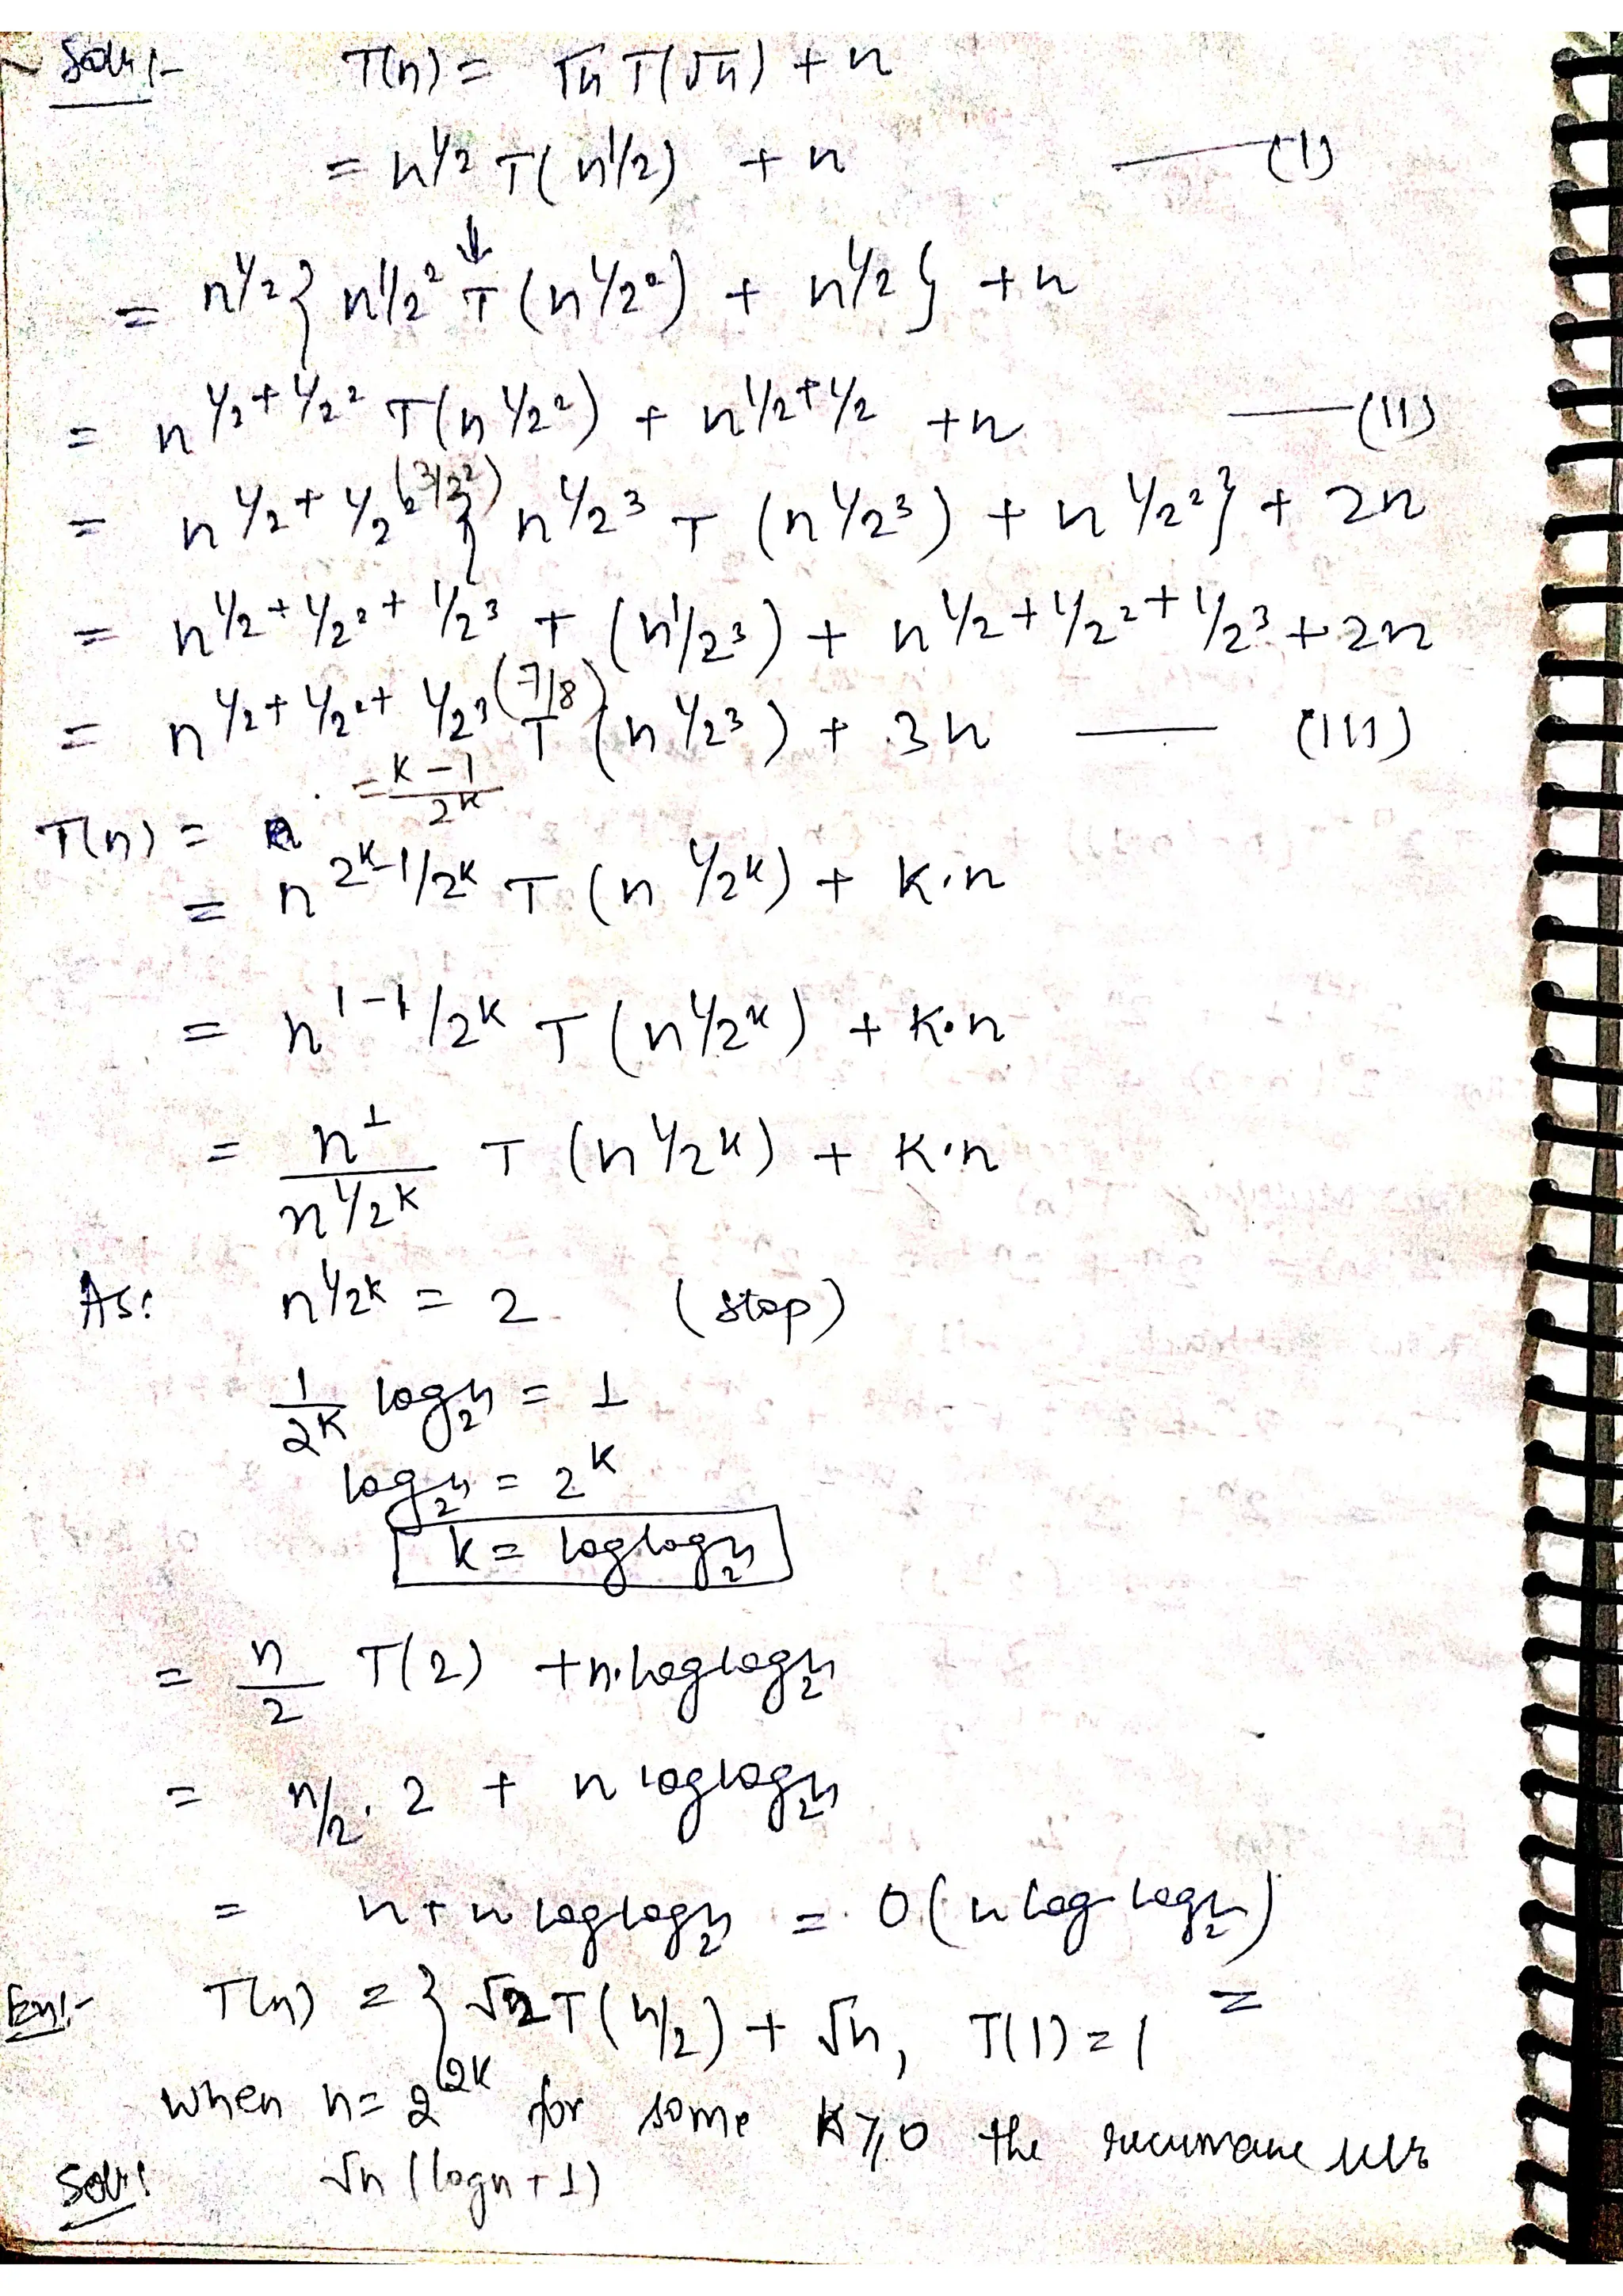 Soln:- T(n) = √n T(√n) + n
= n^1/2 T(n^1/2) + n —— (I)
= n^1/2 { n^1/2^2 T (n^1/2^2) + n^1/2 } + n
= n^1/2+1/2^2 T(n^1/2^2) + n^1/2+1/2 + n —— (II)
= n^1/2+1/2^2 (3/2^2) { n^1/2^3 T (n^1/2^3) + n^1/2^2 } + 2n
= n^1/2+1/2^2+1/2^3 T (n^1/2^3) + n^1/2+1/2^2+1/2^3 + 2n
= n^1/2+1/2^2+1/2^3 (7/8) T (n^1/2^3) + 3n —— (III)
= K-1/2^K
T(n) =
= n^2^K-1/2^K T (n^1/2^K) + K·n
= n^1-1/2^K T (n^1/2^K) + K·n
= n^1/n^1/2^K T (n^1/2^K) + K·n
As: n^1/2^K = 2 (stop)
1/2^K log₂n = 1
log₂n = 2^K
k = loglog₂n
= n/2 T(2) + n·loglog₂n
= n/2 · 2 + n loglog₂n
= n + n loglog₂n = O(n log log₂n)
En:- T(n) = { √2 T(n/2) + √n, T(1) = 1 =
when n = 2^2K for some K ≥ 0 the
Soln: √n (logn + 1)